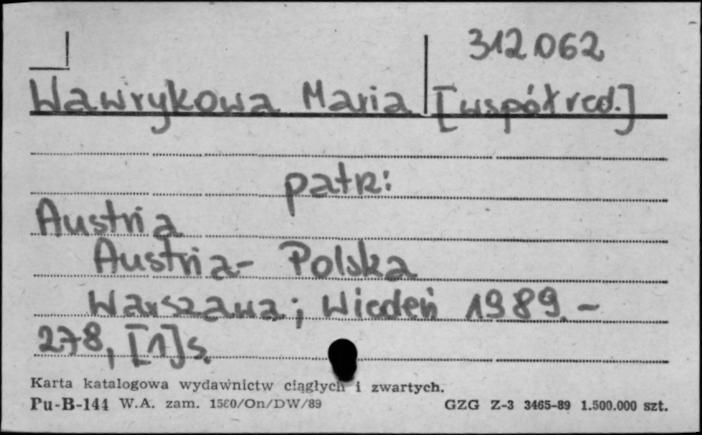 312062
Wawrykowa Maria [współred.]
patrz:
Austria
Austria- Polska
Warszawa; Wiedeń 1989.-
278, [1]s.
Karta katalogowa wydawnictw ciągłych i zwartych.
Pu-B-144 W.A. zam. 1560/On/DW/89 GZG Z-3 3465-89 1.500.000 szt.